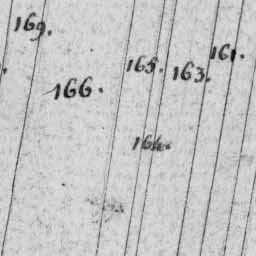 169.
161.
165.
163.
166.
164.